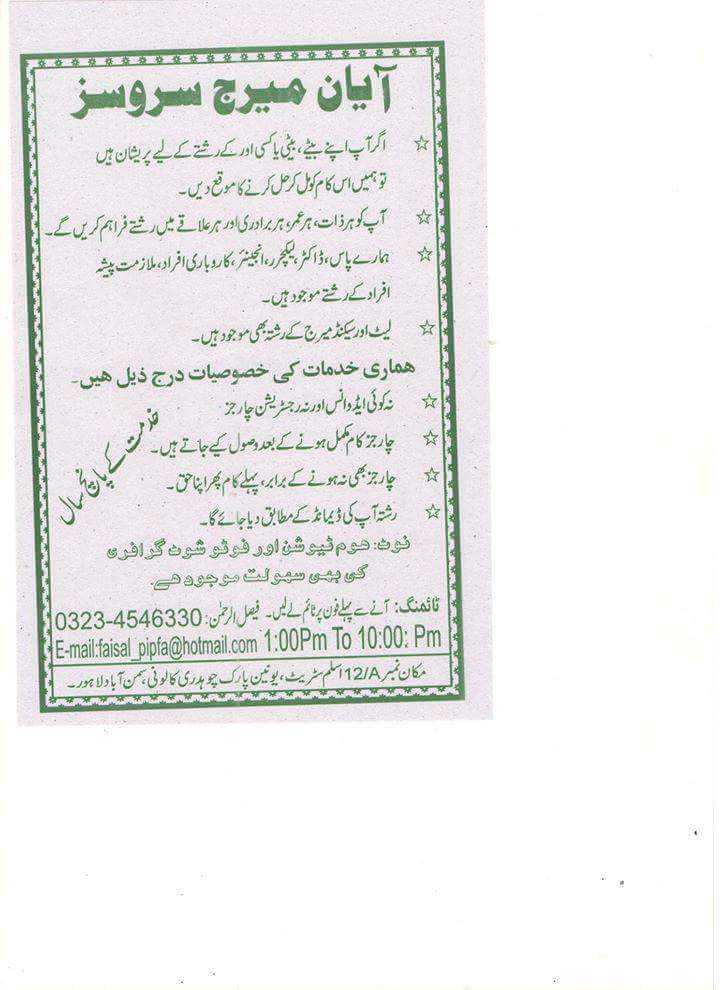 آیان میرج سروسز
☆ اگر آپ اپنے بیٹے، بیٹی یا کسی اور کے رشتے کے لیے پریشان ہیں
تو ہمیں اس کام کو مل کر حل کرنے کا موقع دیں۔
☆ آپ کو ہر ذات، ہر عمر، ہر برادری اور ہر علاقے میں رشتے فراہم کریں گے۔
☆ ہمارے پاس، ڈاکٹر، لیکچرر، انجینئر، کاروباری افراد، ملازمت پیشہ
افراد کے رشتے موجود ہیں۔
☆ لیٹ اور سیکنڈ میرج کے رشتہ بھی موجود ہیں۔
ھماری خدمات کی خصوصیات درج ذیل ھیں۔
☆ نہ کوئی ایڈوانس اور نہ رجسٹریشن چارجز
☆ چارجز کام مکمل ہونے کے بعد وصول کیے جاتے ہیں۔
☆ چارجز بھی نہ ہونے کے برابر، پہلے کام پھر اپنا حق۔
☆ رشتہ آپ کی ڈیمانڈ کے مطابق دیا جائے گا۔
خدمت کے پانچ سال
نوٹ: ھوم ٹیوشن اور فوٹو شوٹ گرافری
کی بھی سہولت موجود ھے۔
ٹائمنگ: آنے سے پہلے فون پر ٹائم لے لیں۔ فیصل الرحمٰن: 0323-4546330
E-mail:faisal_pipfa@hotmail.com 1:00Pm To 10:00: Pm
مکان نمبر 12/A اسلم سٹریٹ، یونین پارک چوہدری کالونی سمن آباد لاہور۔